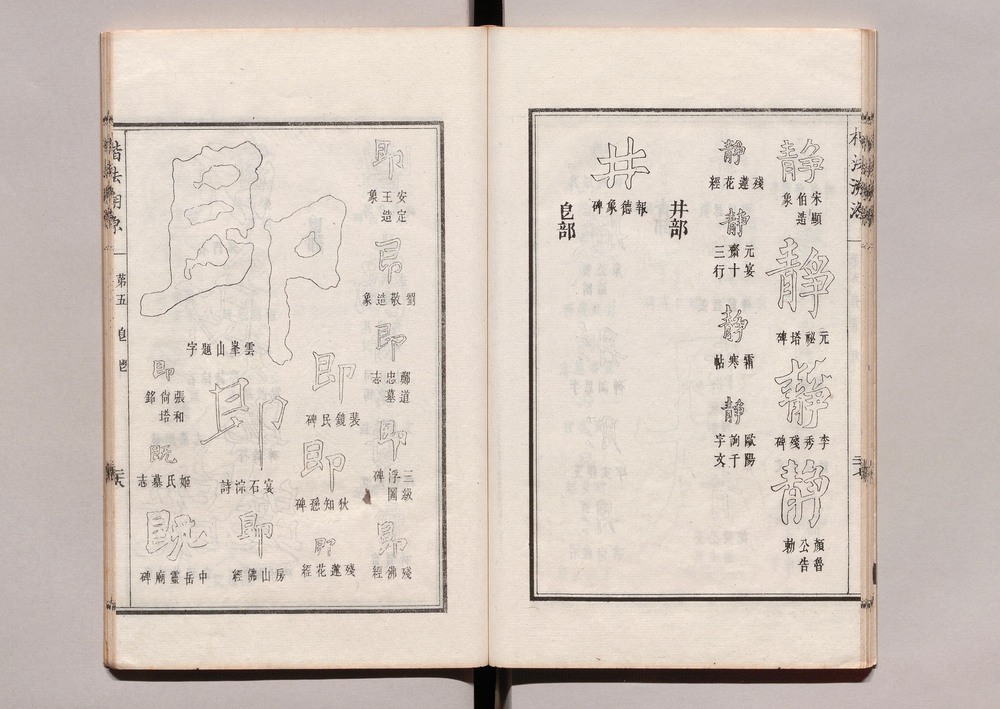 靜
宋顯伯造象
靜
元祕塔碑
靜
李秀殘碑
靜
顏魯公告勅
靜
殘蓮花經
靜
元宴齋十三行
靜
霜寒帖
靜
歐陽詢千字文
井部
井
報德象碑
皀部
即
安定王造象
即
劉敬造象
即
鄭道忠墓志
即
三級浮圖碑
即
殘佛經
即
裴鏡民碑
即
狄知愻碑
即
殘蓮花經
即
雲峯山題字
即
宴石淙詩
即
房山佛經
即
張和尙塔銘
既
姬氏墓志
既
中岳靈廟碑
楷法溯源
第五
皀